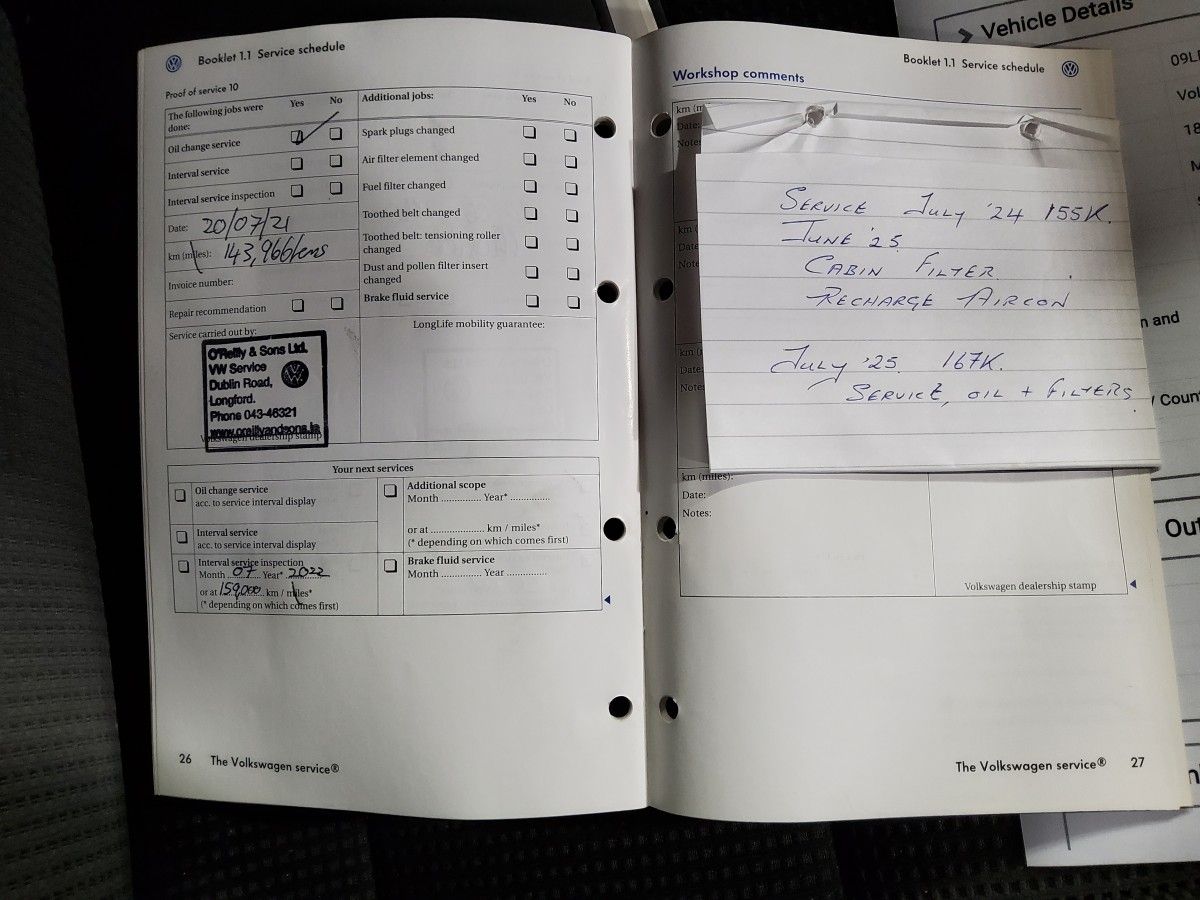 Booklet 1.1 Service schedule
Proof of service 10
The following jobs were done:
Yes
No
Oil change service
Interval service
Interval service inspection
Date: 20/07/21
km (miles): 143,966kms
Invoice number:
Repair recommendation
Service carried out by:
O'Reilly & Sons Ltd.
VW Service
Dublin Road,
Longford.
Phone 043-46321
www.oreillyandsons.ie
Volkswagen dealership stamp
Additional jobs:
Yes
No
Spark plugs changed
Air filter element changed
Fuel filter changed
Toothed belt changed
Toothed belt: tensioning roller
changed
Dust and pollen filter insert
changed
Brake fluid service
LongLife mobility guarantee:
Your next services
Oil change service
acc. to service interval display
Interval service
acc. to service interval display
Interval service inspection
Month 07 Year* 2022
or at 159,000 km / miles*
(* depending on which comes first)
Additional scope
Month ............... Year* ...............
or at .................... km / miles*
(* depending on which comes first)
Brake fluid service
Month ............... Year ...............
26 The Volkswagen service®
Booklet 1.1 Service schedule
Workshop comments
km (m
Date:
Notes
SERVICE JULY '24 155K.
JUNE '25
CABIN FILTER
RECHARGE AIRCON
JULY '25. 167K.
SERVICE, OIL + FILTERS
km (
Date
Note
km (
Date
Notes
km (miles):
Date:
Notes:
Volkswagen dealership stamp
The Volkswagen service® 27
Vehicle Details
09L
Vol
18
M
n and
/ Coun
Ou